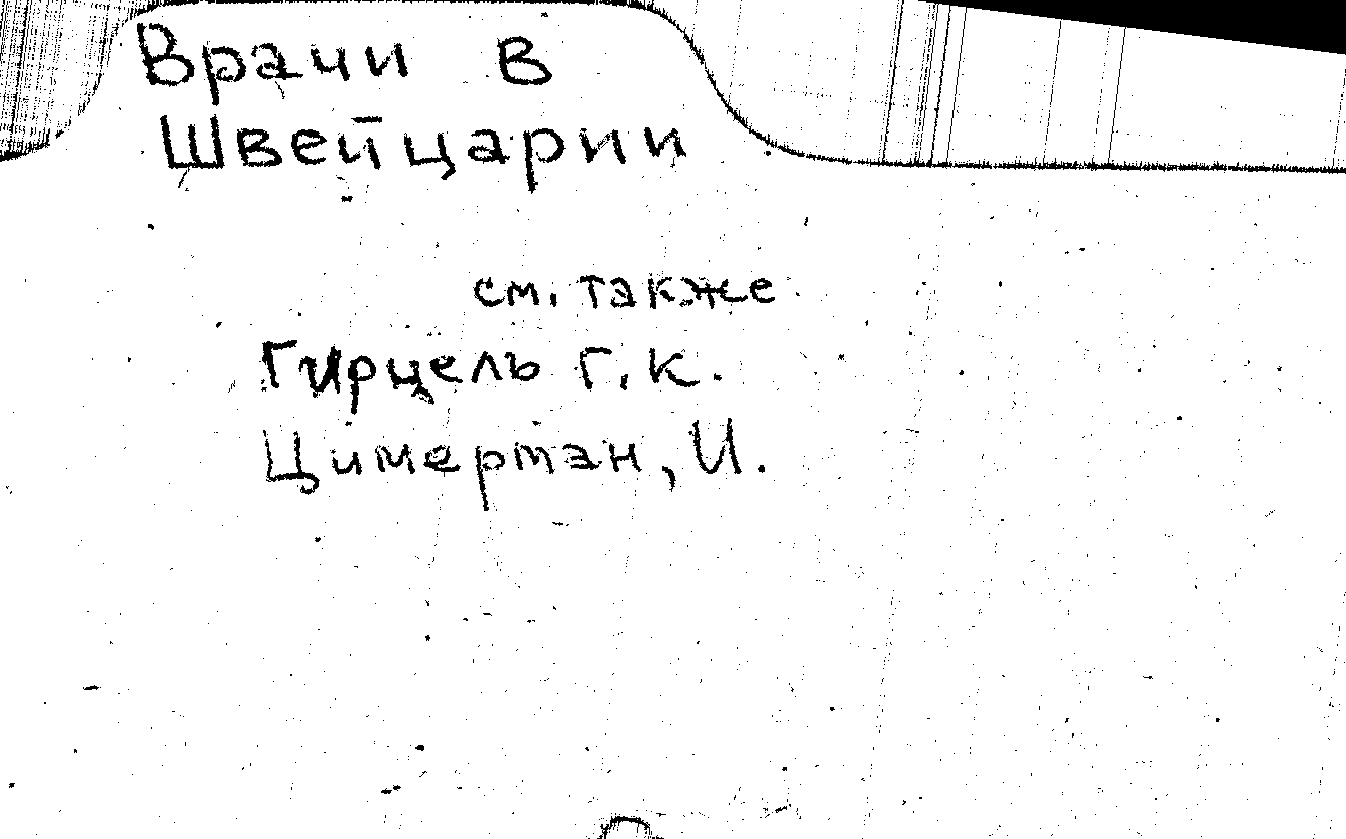 Врачи в
Швейцарии
см. также
Гирцель Г. К.
Цимерман, И.